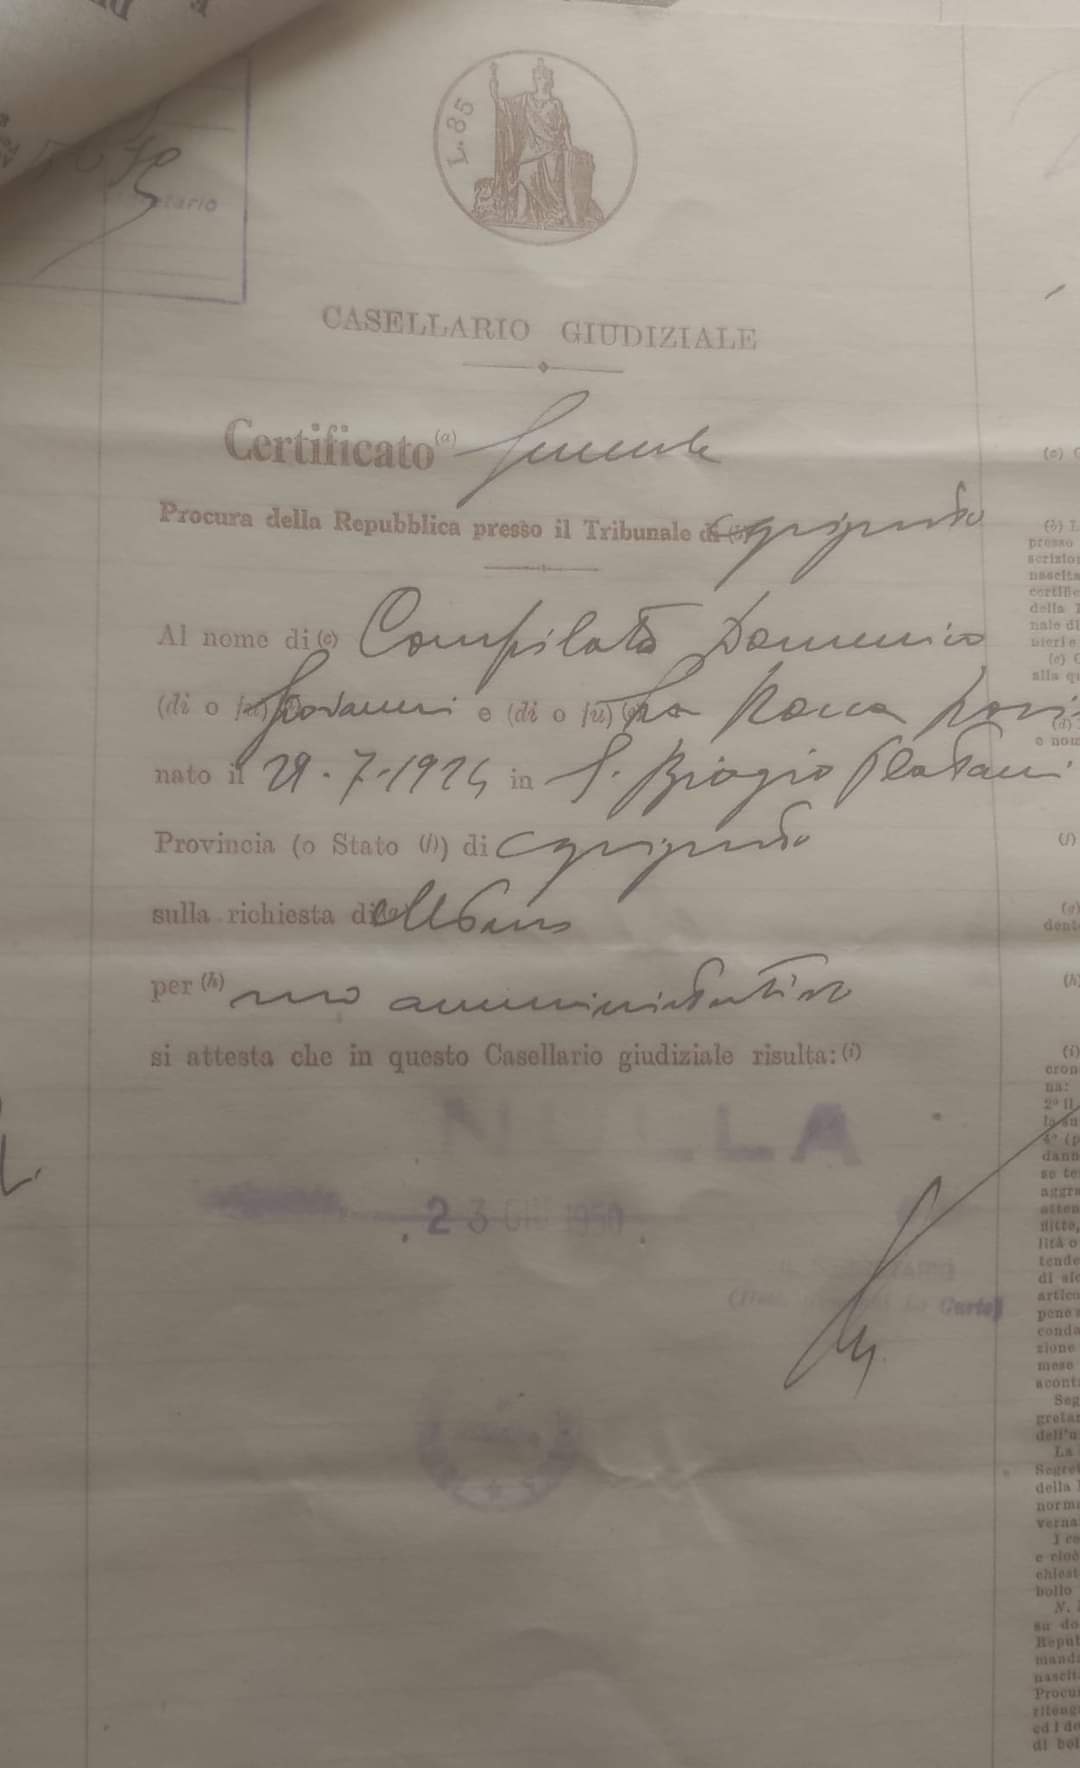 L. 85
CASELLARIO GIUDIZIALE
Certificato (a) Generale
Procura della Repubblica presso il Tribunale di Agrigento
Al nome di (c) Compilato Domenico
(di o fu) Giovanni e (di o fu) La Rocca
nato il 29.7.1924 in S. Biagio Platani
Provincia (o Stato (f)) di Agrigento
sulla richiesta di
per (h) uso amministrativo
si attesta che in questo Casellario giudiziale risulta: (i)
NULLA
23 GIU 1950
IL SEGRETARIO
Lo Curto)
(b) L
presso
scrizion
nascita
certific
della
nale di
nieri e
(c) C
alla qu
(d)
e nom
(f)
dente
(h)
(i)
cron
na:
2° Il
la su
4° (p
dann
se te
aggra
atten
ditto,
lità o
tende
di sic
artico
pene
conda
zione
mese
sconta
Seg
gretar
dell'u
La
Segret
della
norma
verna
I ce
e cioè
chiest
bollo
N.
su do
Repub
manda
nascit
Procur
riteng
ed i do
di bol